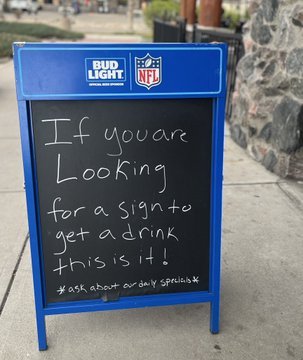 BUD LIGHT
OFFICIAL BEER SPONSOR
NFL
If you are
Looking
for a sign to
get a drink
this is it!
*ask about our daily specials*